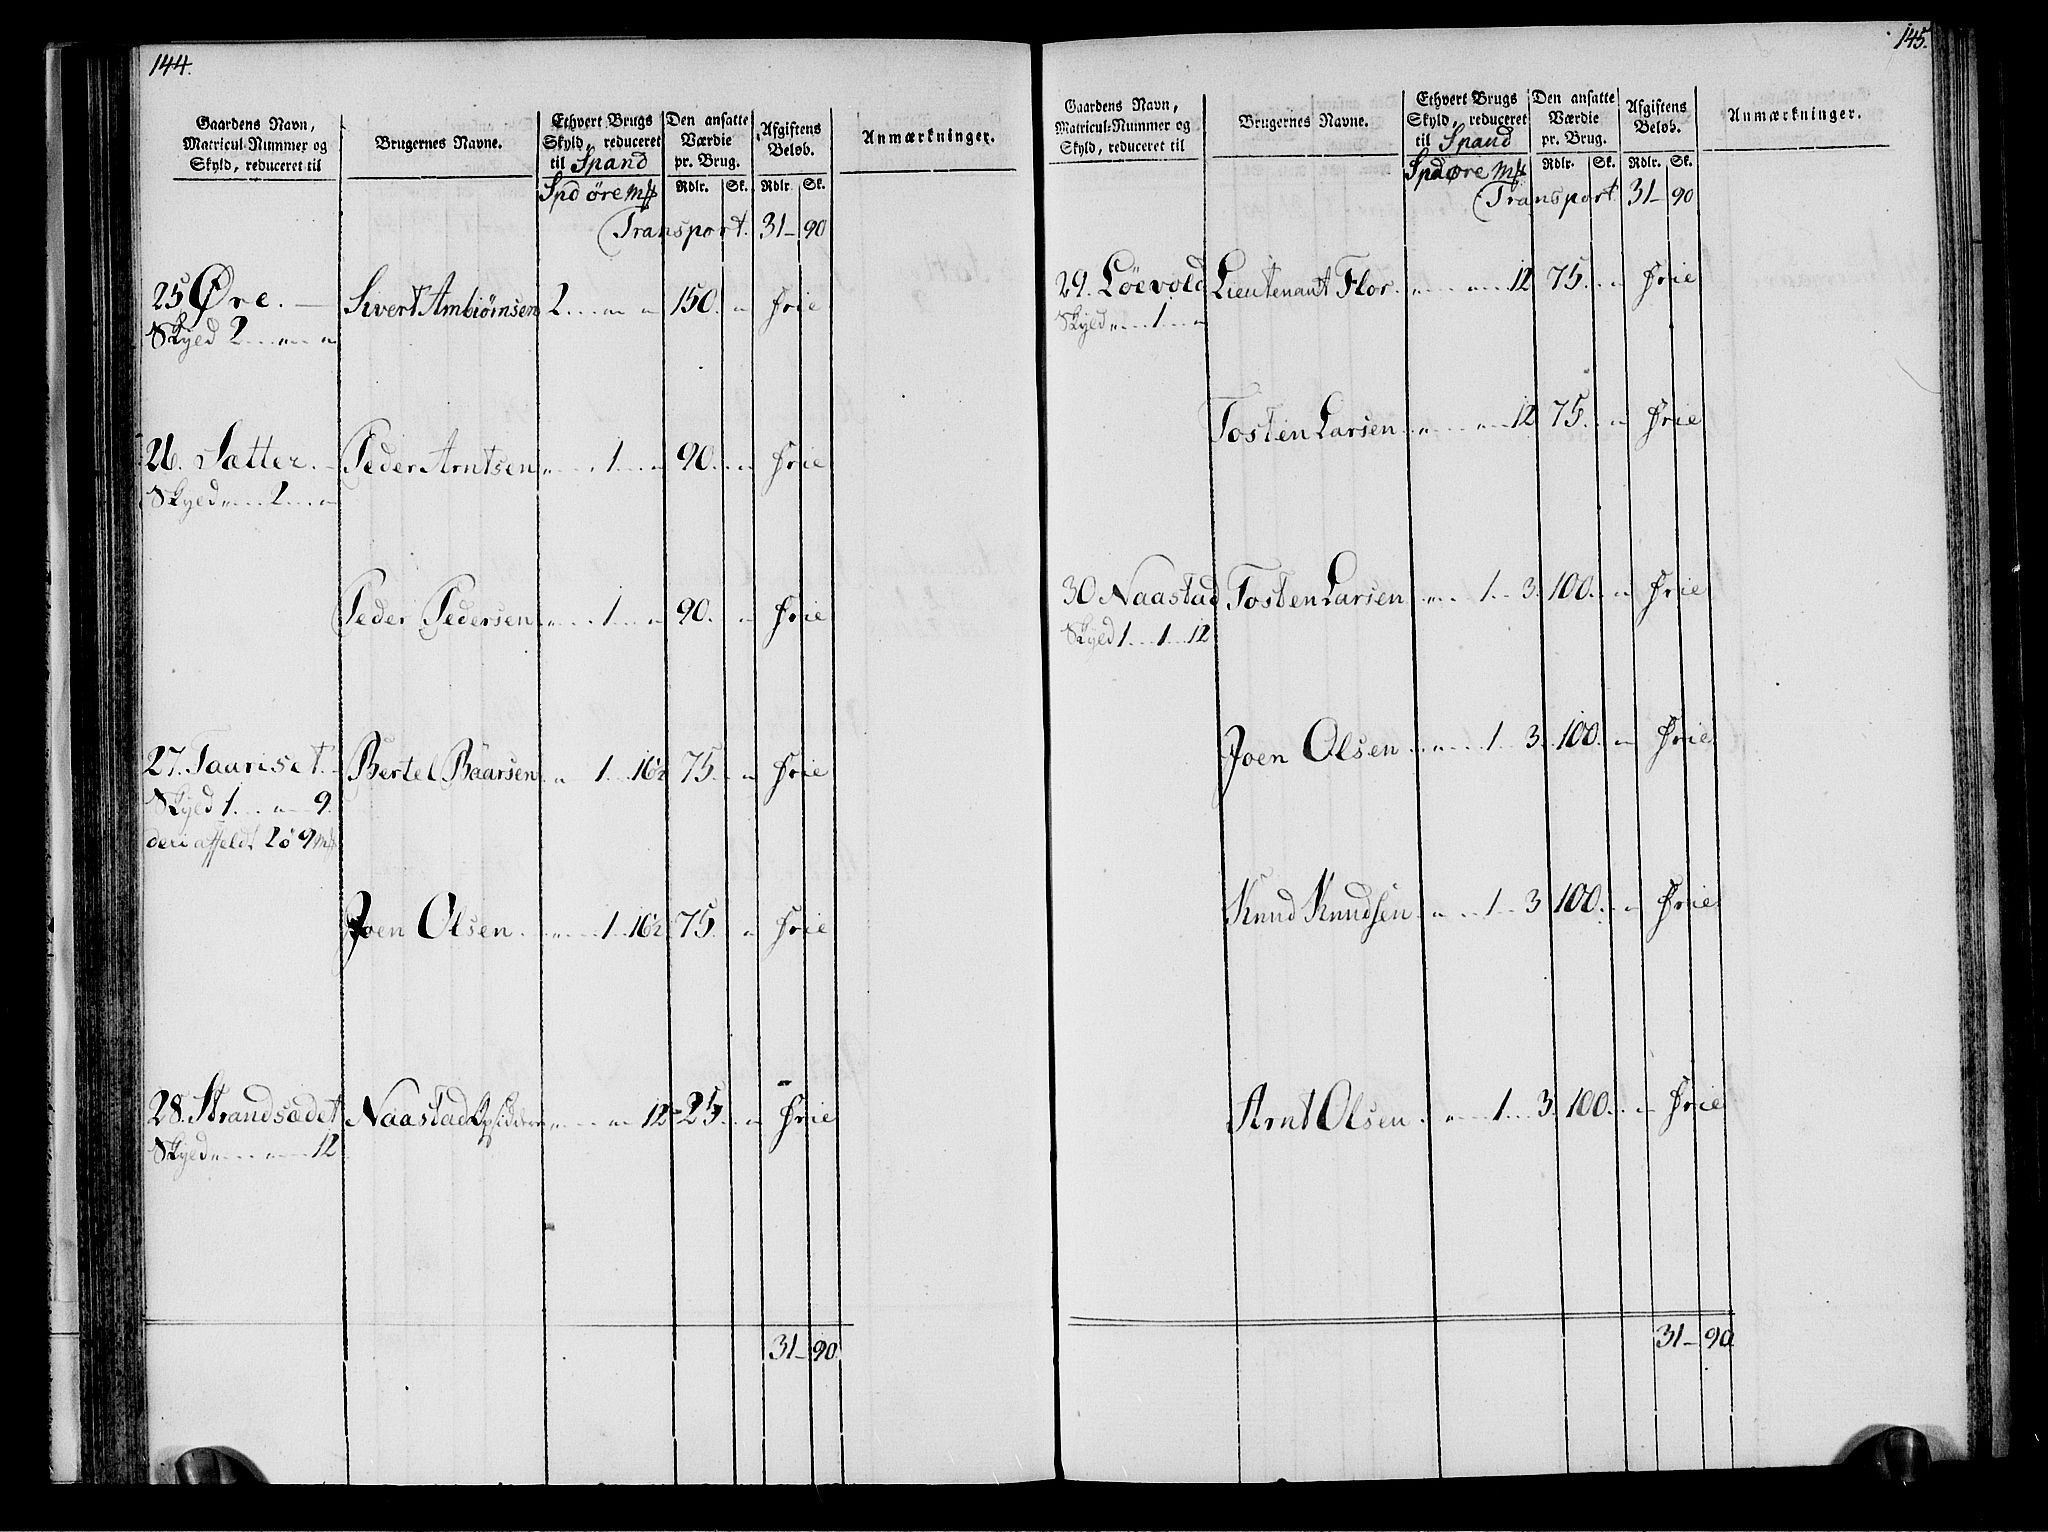 144.
Gaardens Navn, Matricul-Nummer og Skyld, reduceret til
Brugernes Navne.
Ethvert Brugs Skyld, reduceret til Spand
Den ansatte Værdie pr. Brug.
Afgiftens Beløb.
Anmærkninger.
Spd øre m# Rdlr. Sk. Rdlr. Sk.
Transport. 31 - 90
25 Øre. Sivert Ambiørnsen 2 . . " . " 150. " Frie
Skyld 2 . . " . . "
26. Sætter. Peder Arntsen " . . 1 . . " 90. . " Frie
Skyld " . . 2 . . "
Peder Pedersen " . . 1 . . " 90. " Frie
27. Tauriset. Bertel Baarsen " 1 16½ 75. " Frie
Skyld 1 . . " . 9.
deri affeldt 2ö 9m#
Joen Olsen. " . . 1 . 16½ 75. " Frie
28. Strandsædet Naastad Opsiddere " . . " 12 - 25. . " Frie
Skyld " . . " . . 12
31 - 90.
145.
Gaardens Navn, Matricul-Nummer og Skyld, reduceret til
Brugernes Navne.
Ethvert Brugs Skyld, reduceret til Spand
Den ansatte Værdie pr. Brug.
Afgiftens Beløb.
Anmærkninger.
Spd øre m# Rdlr. Sk. Rdlr. Sk.
Transport. 31 - 90
29. Löevold Lieutenant Flor. " . . " . . 12 75. . " Frie
Skyld " . . 1 . . "
Tosten Larsen " . . " . . 12 75. . " Frie
30 Naastad Tosten Larsen " . . 1 . . 3. 100. . " Frie
Skyld 1 . . 1 . . 12
Joen Olsen " . . 1 . 3. 100. " Frie
Knud Knudsen " . . 1 . . 3 100. . " Frie
Arnt Olsen. " . . 1 . . 3. 100. . " Frie
31 - 90